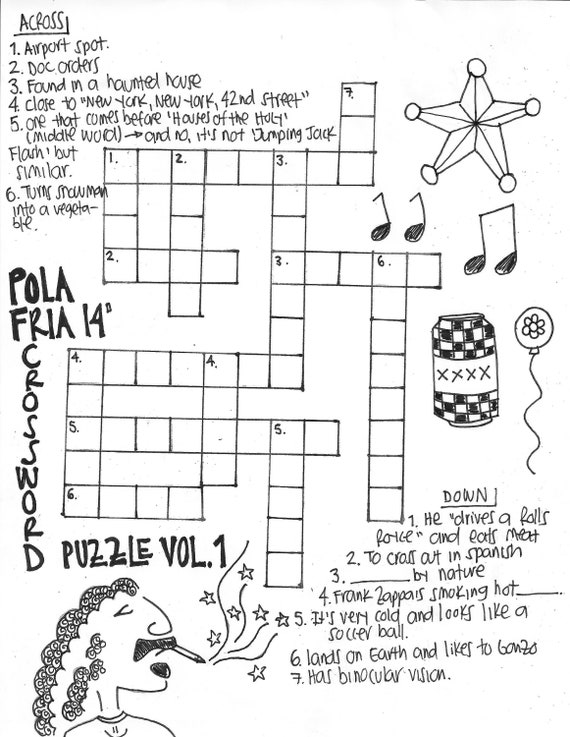 ACROSS
1. Airport spot.
2. Doc orders
3. Found in a haunted house
4 close to "New York, New York, 42nd Street"
5. one that comes before 'Houses of the Holy'
(middle word) → and no, it's not 'Jumping Jack
Flash' but
similar.
6. Turns snowman
into a vegeta-
ble.
7.
1. 2. 3.
2. 3. 6.
POLA
FRIA 14"
CROSSWORD
4. 4.
5. 5.
6.
PUZZLE VOL. 1
XXXX
DOWN
1. He "drives a Rolls
Royce" and eats meat
2. To cross out in spanish
3. ______ by nature
4. Frank Zappa's smoking hot ______.
5. It's very cold and looks like a
soccer ball.
6. lands on Earth and likes to Gonzo
7. Has binocular vision.